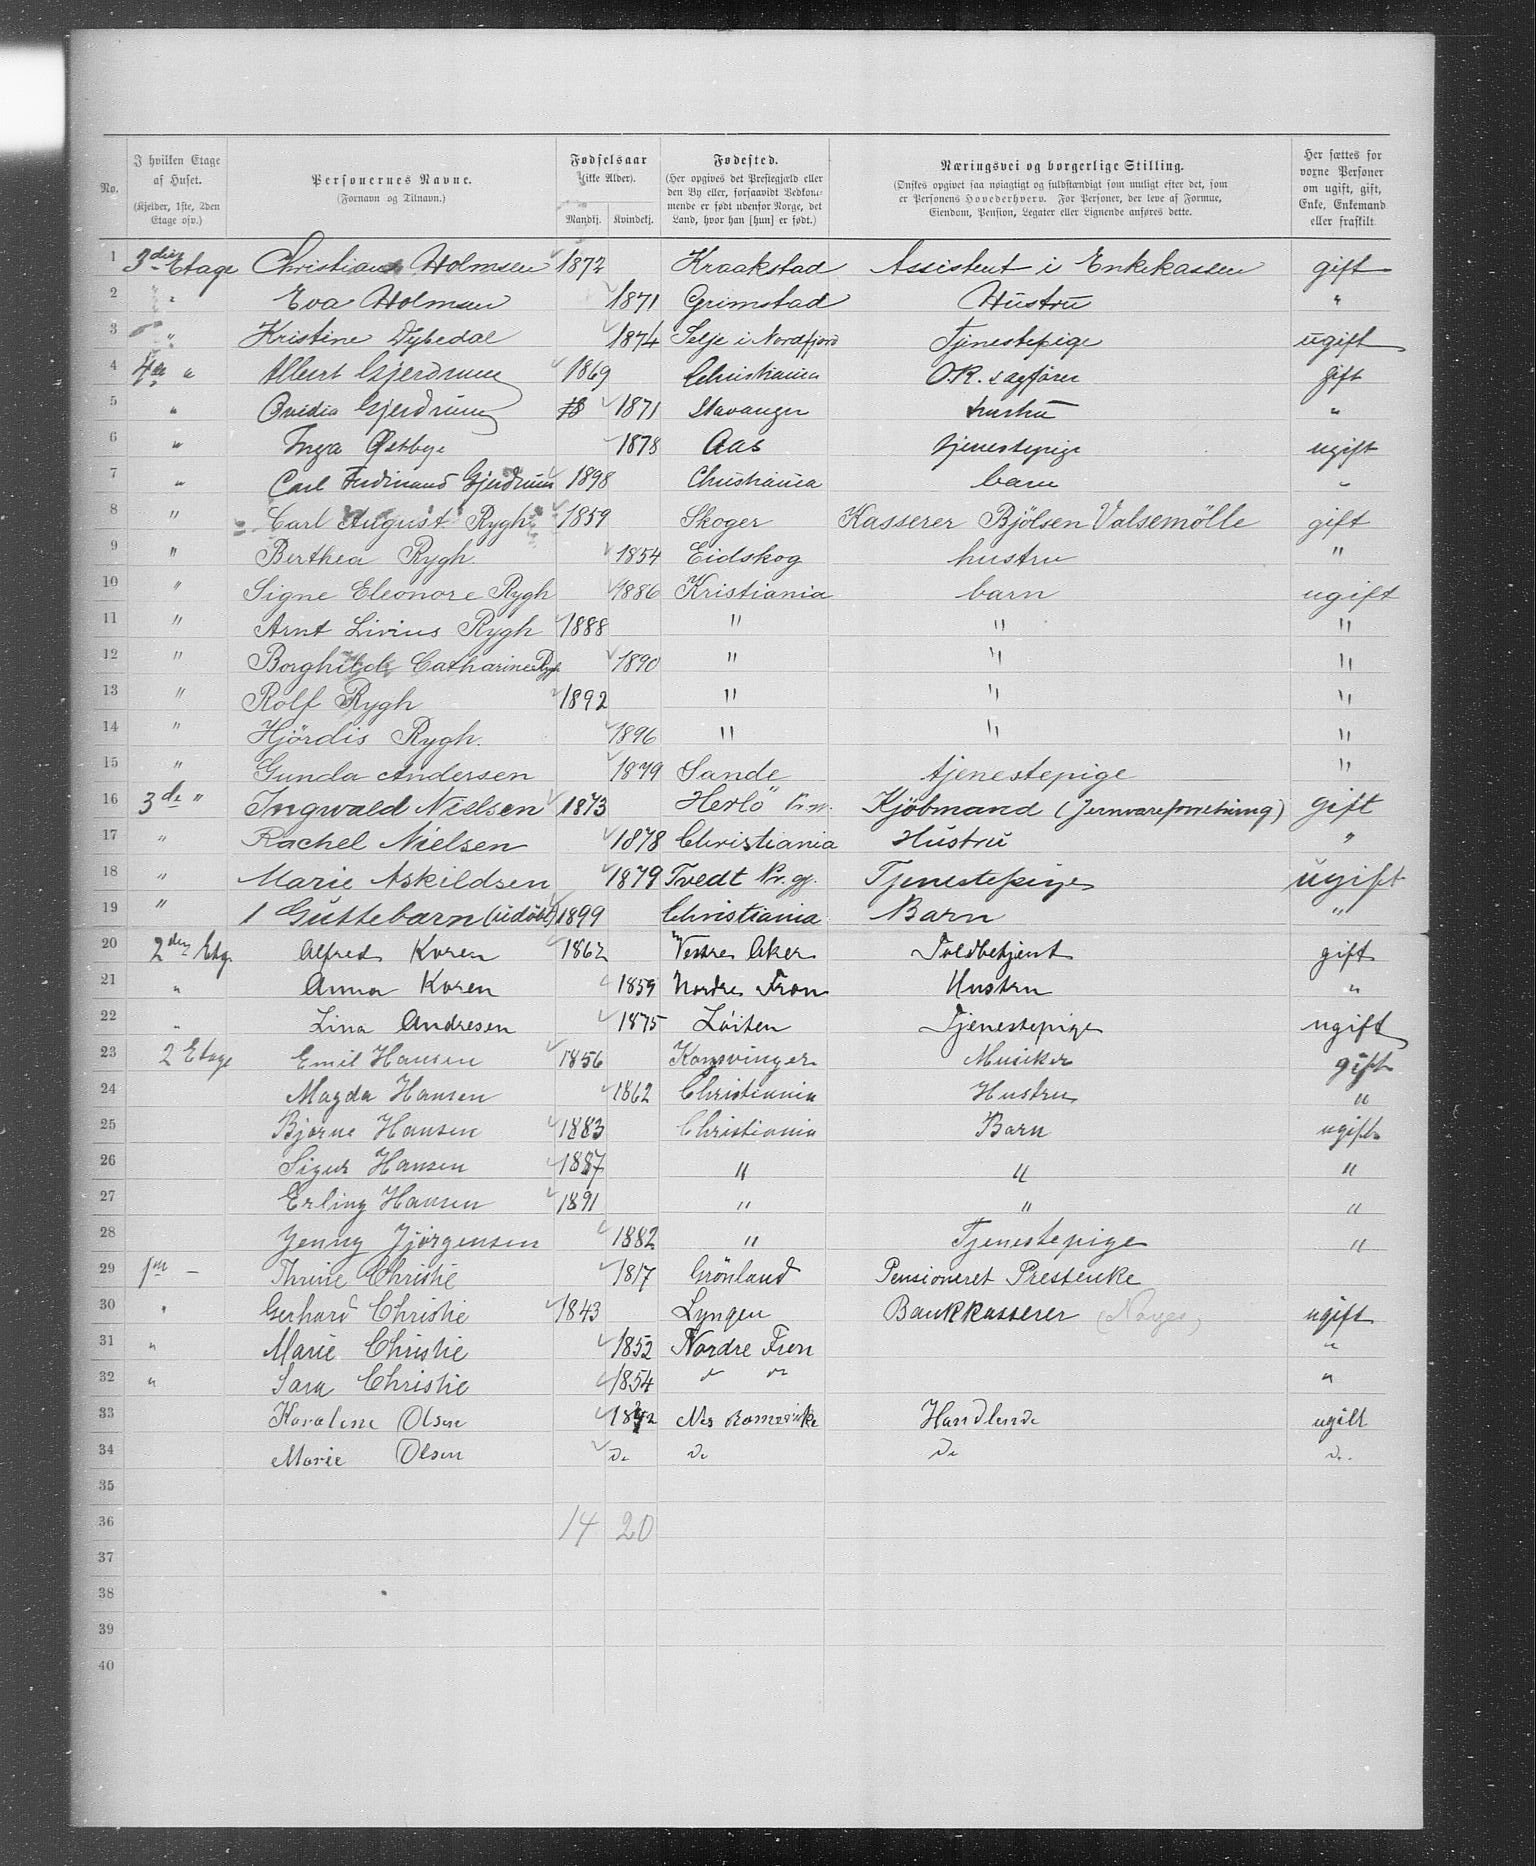 No. | I hvilken Etage af Huset. (Kjelder, 1ste, 2den Etage osv.) | Personernes Navne. (Fornavn og Tilnavn.) | Fødselsaar (ikke Alder). Mandkj. Kvindekj. | Fødested. (Her opgives det Prestegjæld eller den By eller, forsaavidt Vedkommende er født udenfor Norge, det Land, hvor han [hun] er født.) | Næringsvei og borgerlige Stilling. (Ønskes opgivet saa nøiagtigt og fuldstændigt som muligt efter det, som er Personens Hovederhverv. For Personer, der leve af Formue, Eiendom, Pension, Legater eller Lignende anføres dette. | Her sættes for voxne Personer om ugift, gift, Enke, Enkemand eller fraskilt
1 3die Etage Christian Holmsen 1872 Kraakstad Assistent i Enkekassen gift
2 " Eva Holmsen 1871 Grimstad Hustru "
3 " Kristine Dybedal 1874 Selje i Nordfjord Tjenestepige ugift
4 4de " Albert Gjerdrum 1869 Christiania O.R. sagfører gift
5 " Ovidia Gjerdrum 1871 Stavanger hustru "
6 " Inga Østbye 1878 Aas tjenestepige ugift
7 " Carl Ferdinand Gjerdrum 1898 Christiania barn "
8 " Carl August Rygh 1859 Skoger Kasserer Bjölsen Valsemölle gift
9 " Berthea Rygh. 1854 Eidskog hustru "
10 " Signe Eleonore Rygh 1886 Kristiania barn ugift
11 " Arnt Livius Rygh 1888 " " "
12 " Borghild Catharine Rygh 1890 " " "
13 " Rolf Rygh 1892 " " "
14 " Hjördis Rygh. 1896 " " "
15 " Gunda Andersen 1879 Sande tjenestepige "
16 3de " Ingwald Nielsen 1873 Herlö Kjöbmand (Jernvareforretning) gift
17 " Rachel Nielsen 1878 Christiania Hustru "
18 " Marie Askildsen 1879 Tvedt Pr.gj. Tjenestepige ugift
19 " 1 Guttebarn (udöbt) 1899 Christiania Barn "
20 2den Etg. Alfred Koren 1862 Vestre Aker Toldbetjent gift
21 " Anna Koren 1859 Nordre Fron Hustru "
22 " Lina Andresen 1875 Löiten Tjenestepige ugift
23 2 Etage Emil Hansen 1856 Kongsvinger Musiker gift
24 Magda Hansen 1862 Christiania Hustru "
25 Bjarne Hansen 1883 Christiania Barn ugift
26 Sigur Hansen 1887 " " "
27 Erling Hansen 1891 " " "
28 Jenny Jjørgensen 1882 " Tjenestepige "
29 1ste — Thrine Christie 1817 Grönland Pensioneret Prestenke
30 " Gerhard Christie 1843 Lyngen Bankkasserer (Norges) ugift
31 " Marie Christie 1852 Nordre Fron "
32 " Sara Christie 1854 " " "
33 Karoline Olsen Nes Romerike Handlende ugift
34 Marie Olsen do do do do.
35
36 14 20
37
38
39
40